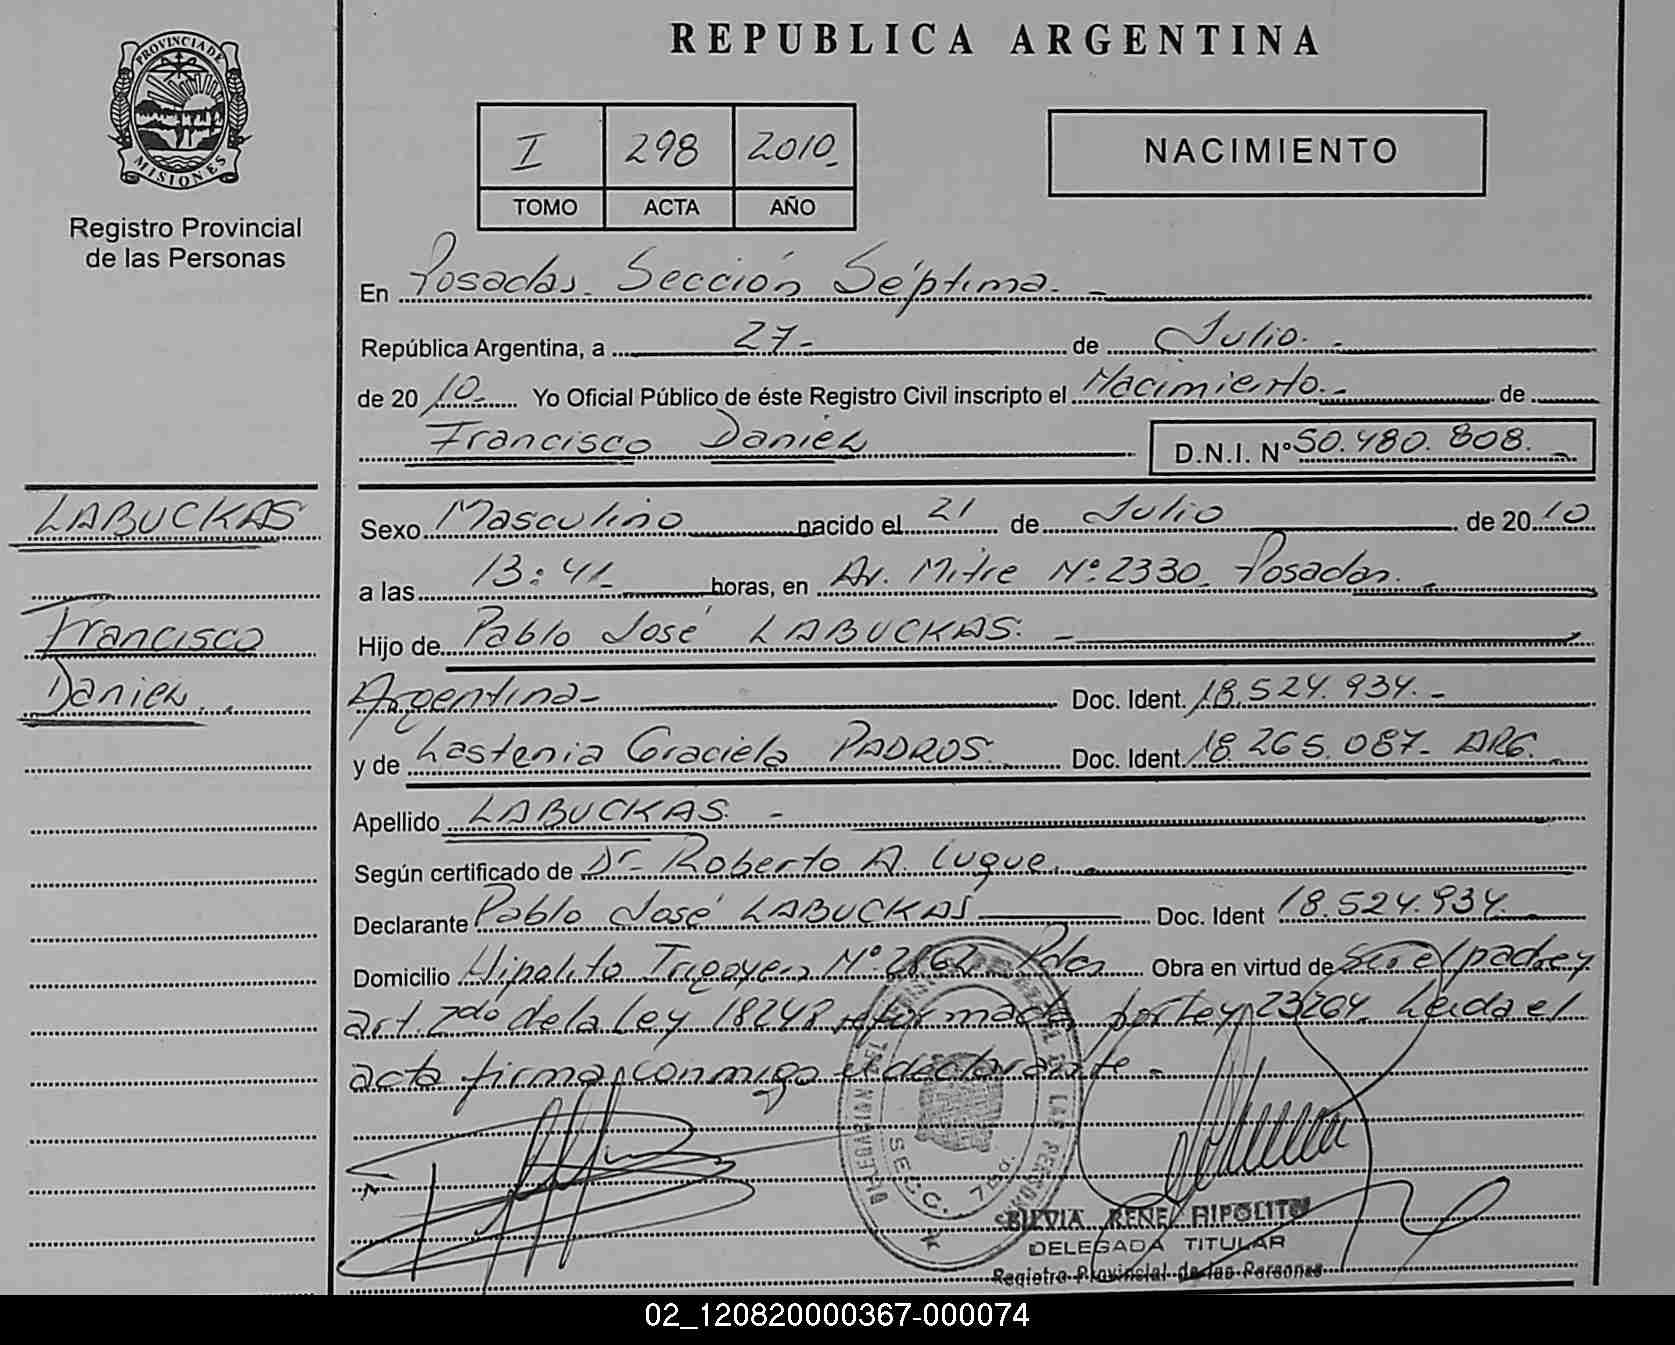 REPUBLICA ARGENTINA
PROVINCIA DE
MISIONES
Registro Provincial
de las Personas
I 298 2010
TOMO ACTA AÑO
NACIMIENTO
En Posadas. Sección Séptima.
República Argentina, a 27 de Julio.
de 2010 Yo Oficial Público de éste Registro Civil inscripto el Nacimiento de
Francisco Daniel D.N.I. Nº 50.480.808.
LABUCKAS
Francisco
Daniel
Sexo Masculino nacido el 21 de Julio de 2010
a las 13:41 horas, en Av. Mitre Nº 2330 Posadas.
Hijo de Pablo José LABUCKAS.
Argentina Doc. Ident. 18.524.934.
y de Lastenia Graciela PADROS. Doc. Ident. 18.265.087 ARG.
Apellido LABUCKAS
Según certificado de Dr. Roberto A. Luque.
Declarante Pablo José LABUCKAS Doc. Ident 18.524.934.
Domicilio Hipolito Irigoyen Nº 2862 Pdas Obra en virtud de Ser el padre y
art. 2do de la Ley 18248 reformada por Ley 23264. Leida el
acta firma conmigo el declarante
SECC. 7ma.
SILVIA RENE HIPOLITO
DELEGADA TITULAR
Registro Provincial de las Personas
02_120820000367-000074